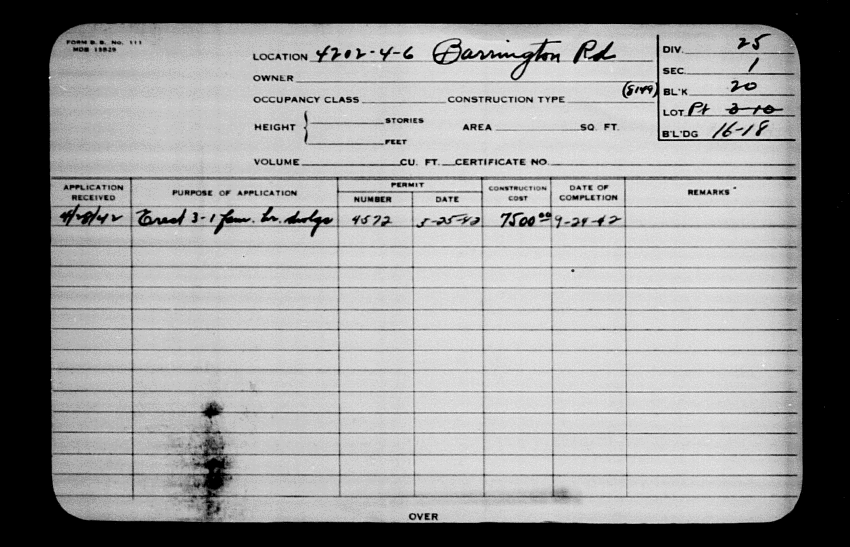 FORM B. B. No. 111
MDB 15829
LOCATION 4202-4-6 Barrington Rd
DIV. 25
OWNER
SEC. 1
OCCUPANCY CLASS CONSTRUCTION TYPE (5149)
BL'K 20
HEIGHT { STORIES FEET AREA SQ. FT.
LOT Pt 3-10
B'L'DG 16-18
VOLUME CU. FT. CERTIFICATE NO.
APPLICATION RECEIVED PURPOSE OF APPLICATION PERMIT NUMBER DATE CONSTRUCTION COST DATE OF COMPLETION REMARKS
4/28/42 Erect 3-1 fam. br. dwlgs 4572 5-25-42 7500.00 9-24-42
OVER